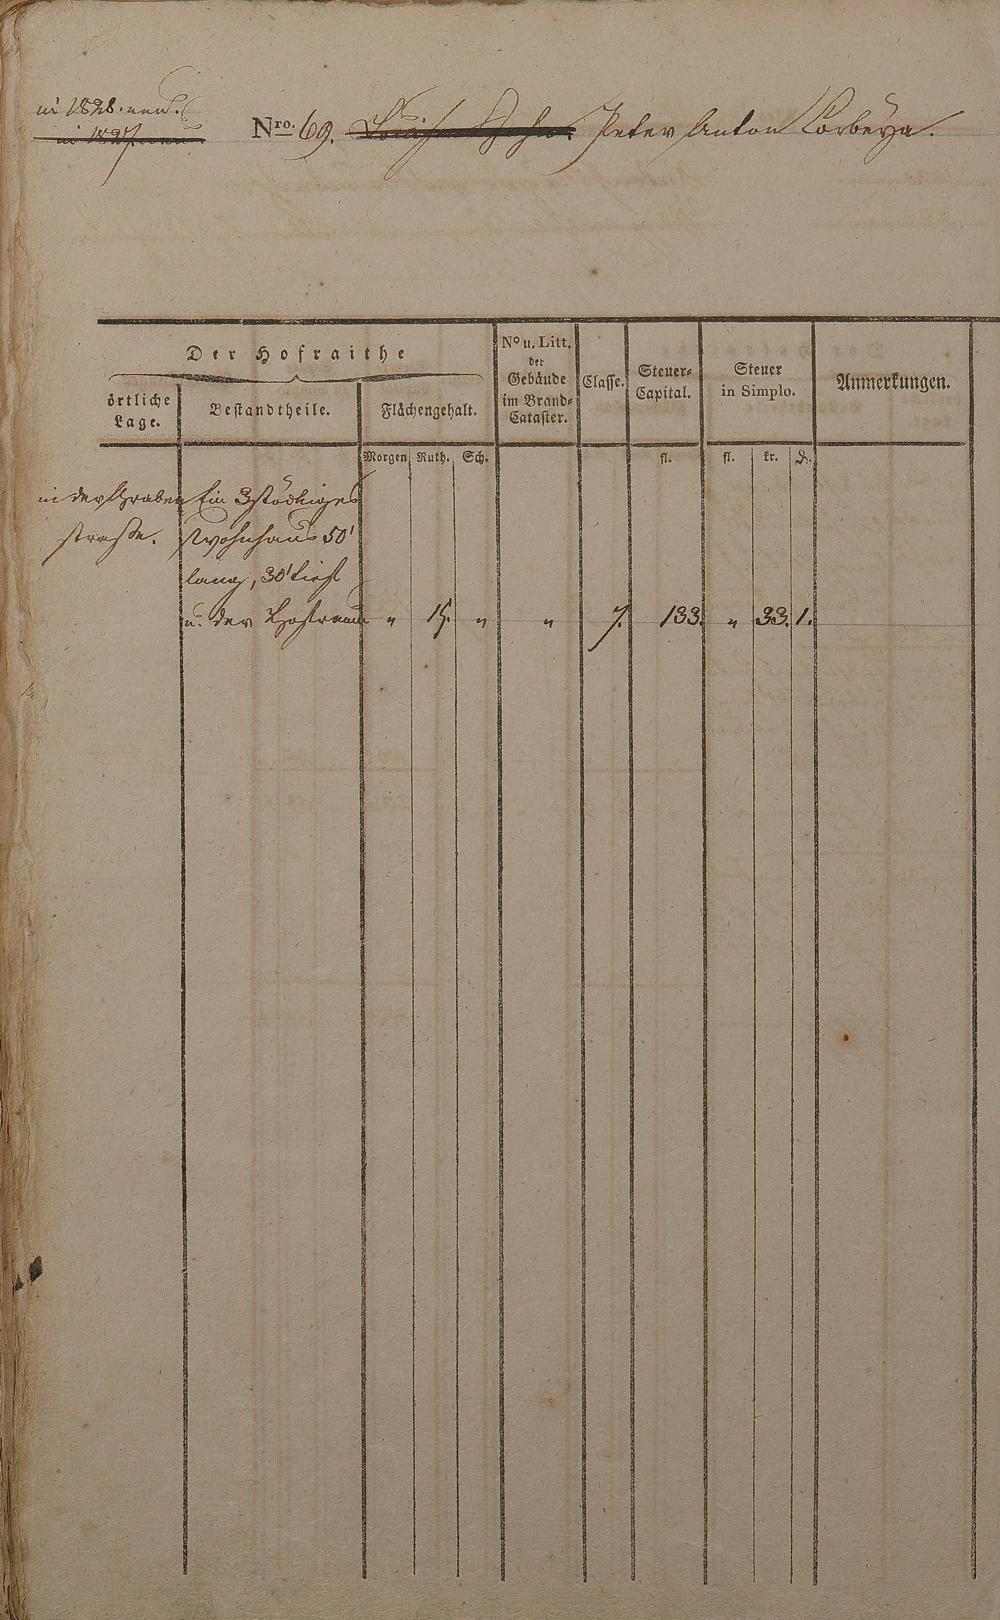 in 1828. neu.
in 1827. neu
Nro. 69. Peter Anton Corbeya.
Der Hofraithe
örtliche Lage.
Bestandtheile.
Flächengehalt.
No u. Litt. der Gebäude im Brand-Cataster.
Classe.
Steuer-Capital.
Steuer in Simplo.
Anmerkungen.
Morgen Ruth. Sch. fl. fl. kr. d.
in der Graben Ein 3stöckiges
straße. Wohnhaus 50'
lang, 30' tief
u. der Hofraum „ 15. „ „ 7. 133. „ 33. 1.